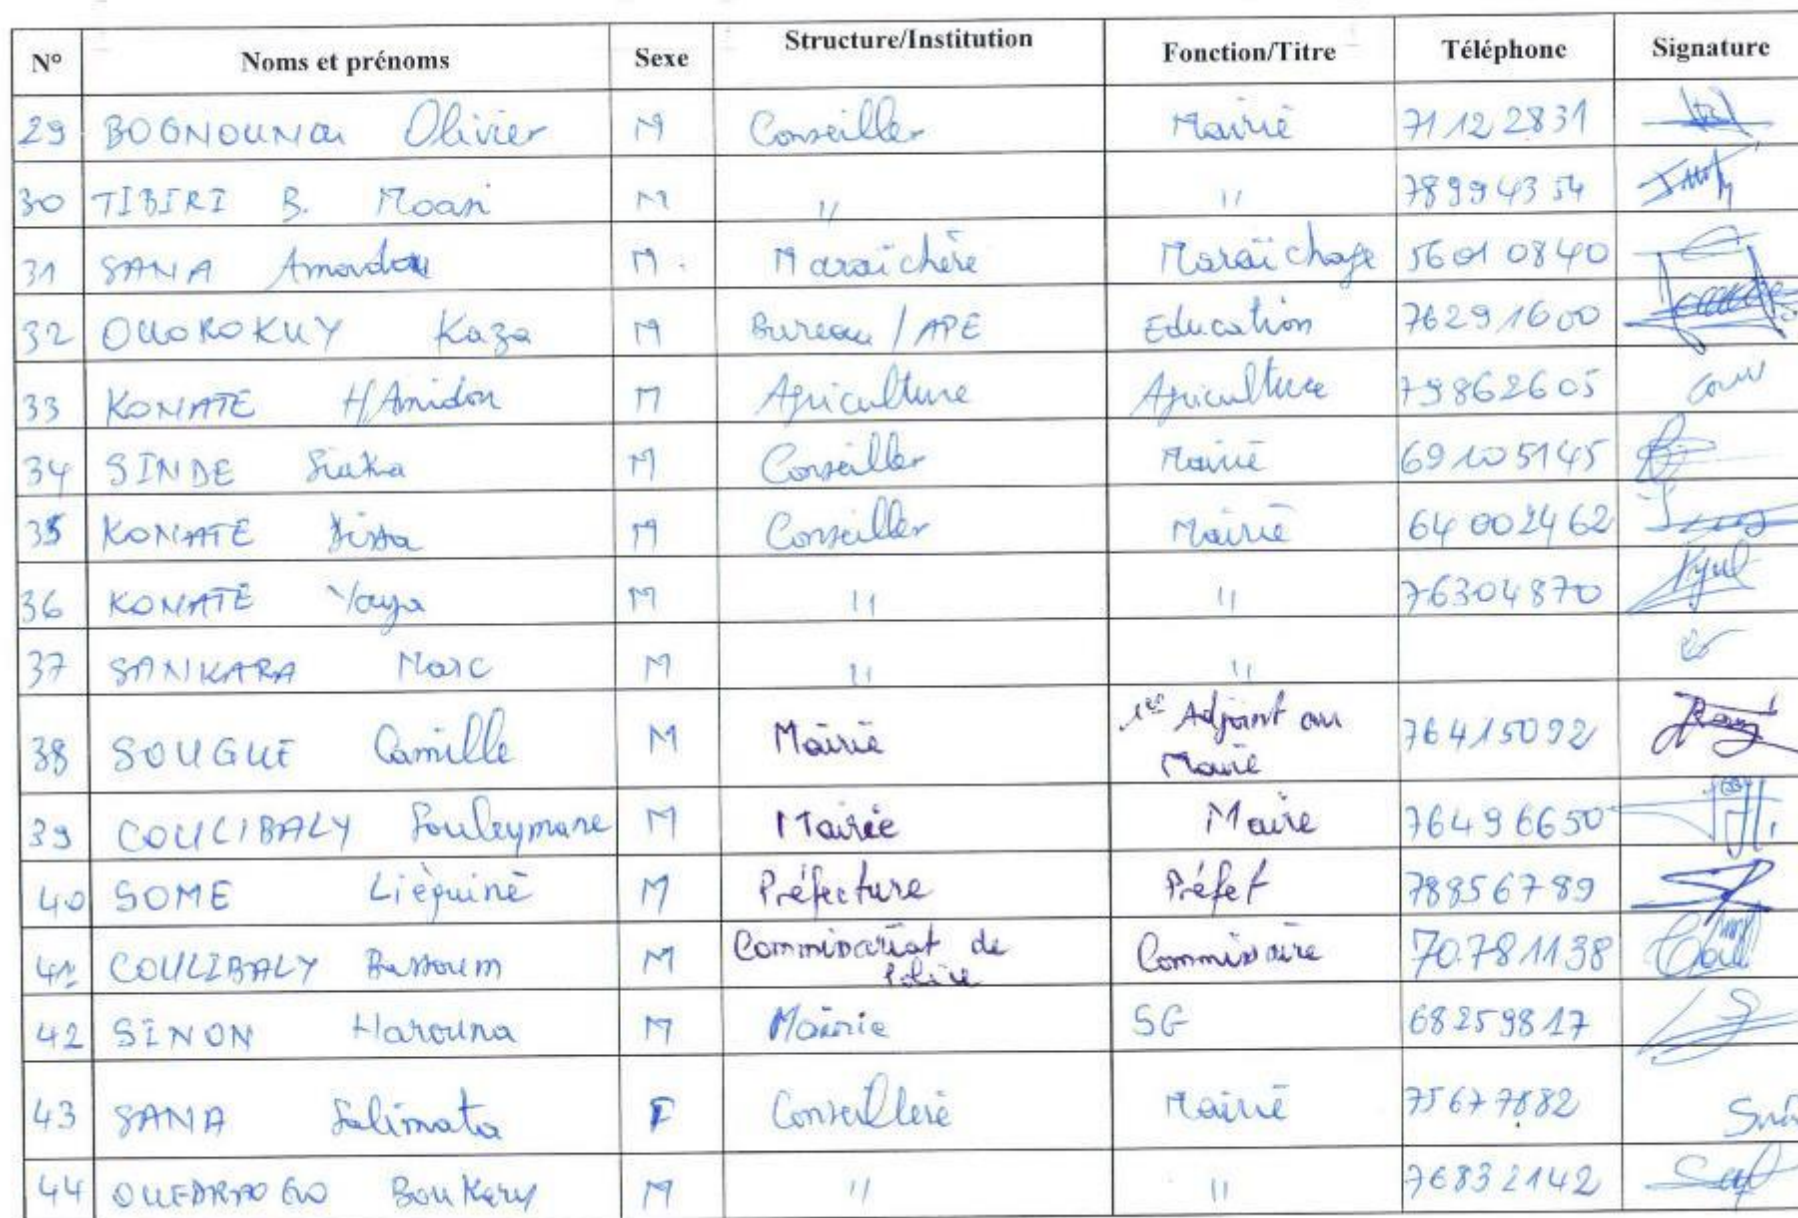 N° Noms et prénoms Sexe Structure/Institution Fonction/Titre Téléphone Signature
29 BOGNOUNOU Olivier M Conseiller Mairie 71122831
30 TIBIRI B. Moasi M " " 78994354
31 SANA Amadou M. Maraîchère Maraîchage 56010840
32 OUOROKUY Kaza M Bureau / APE Education 76291600
33 KONATE HAmidou M Agriculture Agriculture 79862605
34 SINDE Siaka M Conseiller Mairie 69105145
35 KONATE M Conseiller Mairie 64002462
36 KONATE Yaya M " " 76304870
37 SANKARA Marc M " "
38 SOUGUE Camille M Mairie 1er Adjoint au
Maire 76415092
39 COULIBALY Souleymane M Mairie Maire 76496650
40 SOME Lièquinè M Préfecture Préfet 78856789
41 COULIBALY Bassoum M Commissariat de
Police Commissaire 70781138
42 SINON Harouna M Mairie SG 68259817
43 SANA Salimata F Conseillère Mairie 75677882
44 OUEDRAOGO Boukary M " " 76832142